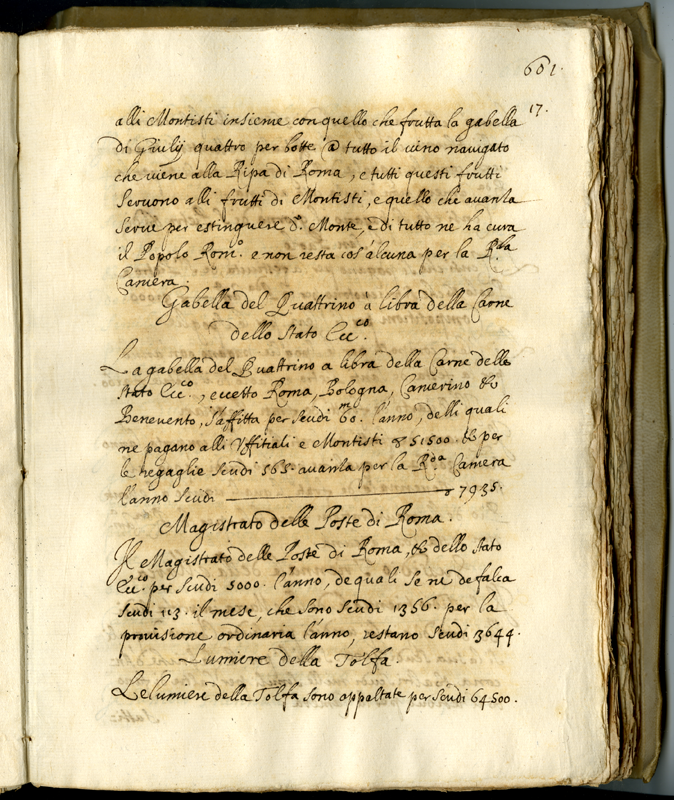 601.
17.
alli Montisti insieme con quello che frutta la gabella
di Giulij quattro per botte @ tutto il vino navigato
che viene alla Ripa di Roma, e tutti questi frutti
servono alli frutti di Montisti, e quello che avanza
serve per estinguere d.º Monte, e di tutto ne ha cura
il Popolo Rom.º e non resta cos'alcuna per la R.da
Camera.
Gabella del Quattrino à libra della Carne
dello Stato Ecc.co
La gabella del Quattrino a libra della Carne dello
Stato Ecc.co, eccetto Roma, Bologna, Camerino &
Benevento, s'affitta per scudi 60.m l'anno, delli quali
ne pagano alli Uffitiali e Montisti 51500. & per
le regaglie scudi 565. avanza per la R.da Camera
l'anno scudi 7935.
Magistrato delle Poste di Roma.
Il Magistrato delle Poste di Roma, & dello stato
Ecc.co per scudi 5000. l'anno, de quali se ne defalca
scudi 113. il mese, che sono scudi 1356. per la
provisione ordinaria l'anno, restano scudi 3644.
Lumiere della Tolfa.
Le lumiere della Tolfa sono appaltate per scudi 64500.